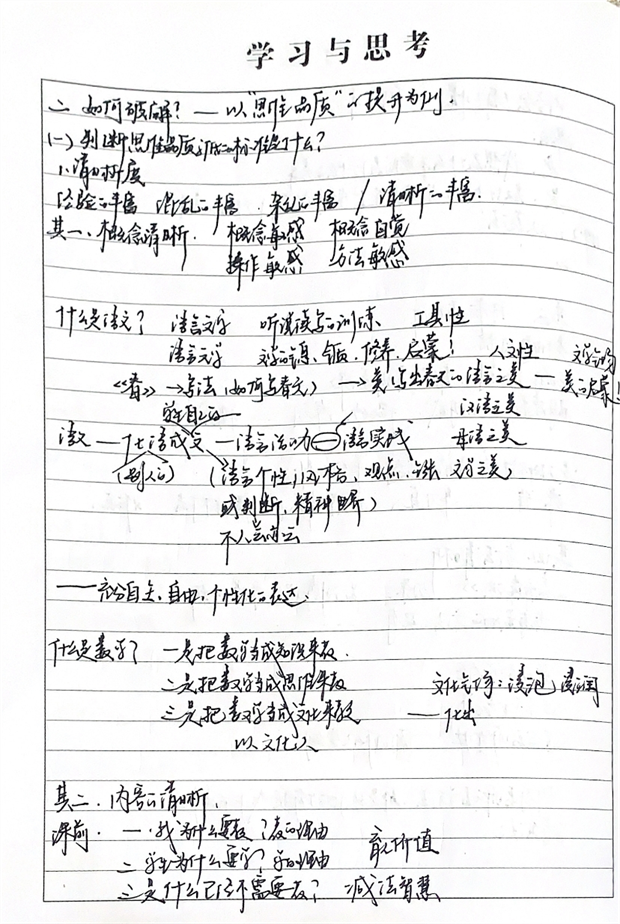 学习与思考
二 如何破解？——以“思维品质”的提升为例.
(一)判断思维品质的标准是什么？
1.清晰度
经验的丰富 混乱的丰富 杂乱的丰富 / 清晰的丰富.
其一、概念清晰. 概念敏感 概念自觉
操作敏感 方法敏感
什么是语文？ 语言文字 听说读写的训练 工具性
语言文学 修养、启蒙！ 人文性
《春》→写法(如何写春天) → 美 写出春天的语言之美 — 美的启蒙！
学生自己的 汉语之美
语文 — 化语成文 — 语言活动 — 语言实践 母语之美
(别人的) (语言个性,风格、观点、主张 文学之美
或判断,精神世界)
不人云亦云
——充分自主,自由,个性化的表达.
什么是数学？ 一是把数学当成知识来教.
二是把数学当成思维来教 文化:浸泡,浸润
三是把数学当成文化来教 ——化出
以文化人
其二. 内容的清晰.
课前. 一.我为什么要教？教的理由
二 学生为什么要学？学的理由 育人价值
三是什么已经不需要教？ 减法智慧